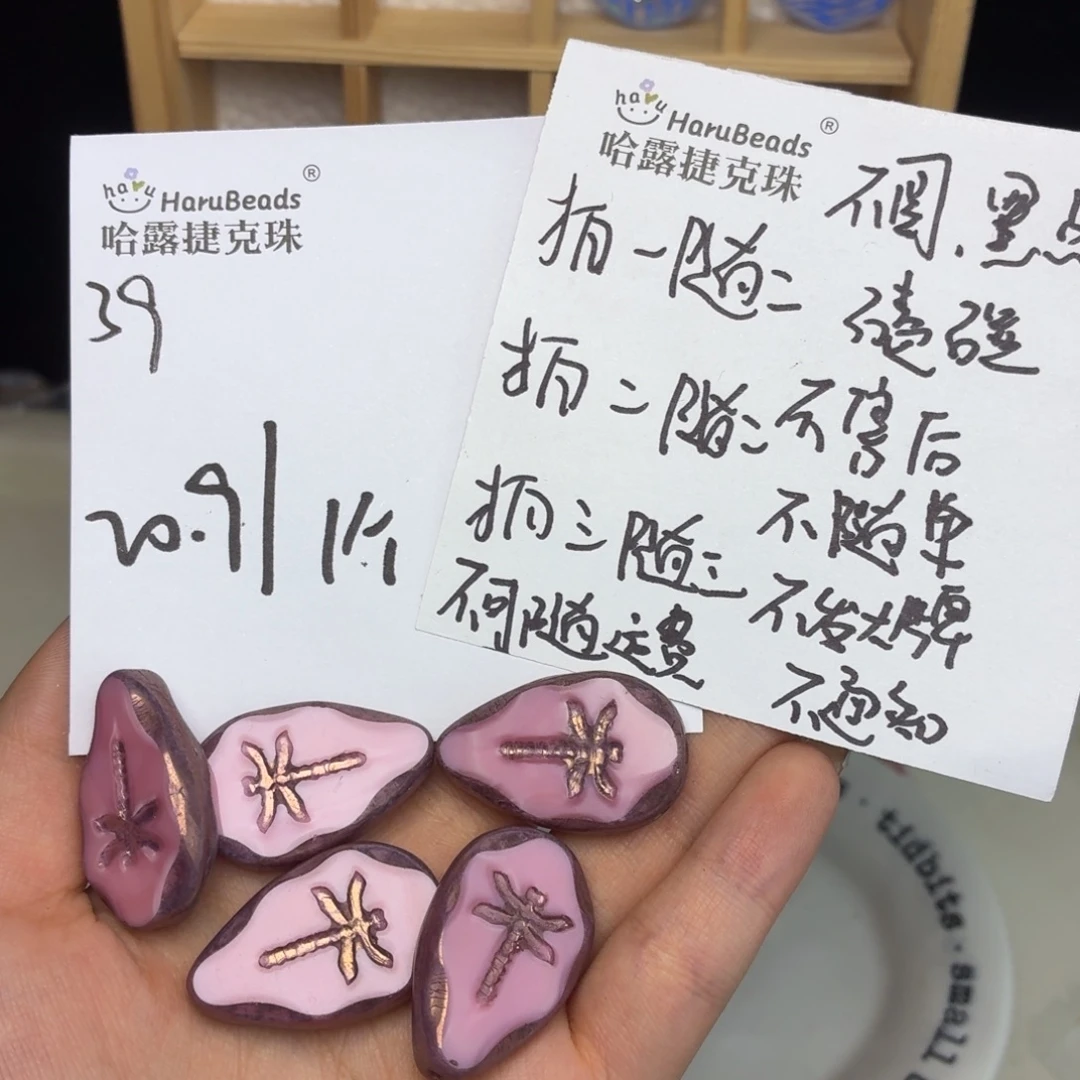 haru HaruBeads®
哈露捷克珠
39
20.9/1个
haru HaruBeads®
哈露捷克珠
拍一随二
拍二随二
拍三随三
黑点
磕碰
不售后
不随单
不发大牌
不通知
· tidbits · small